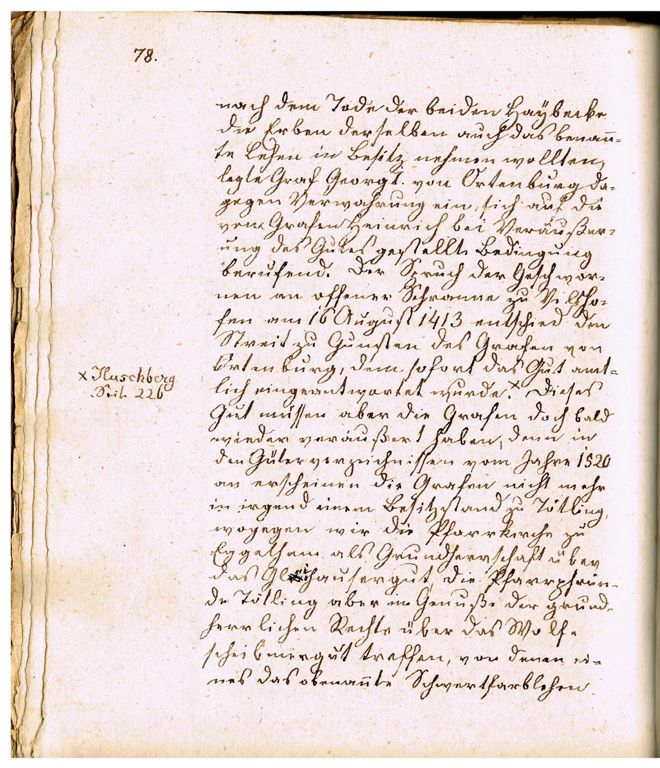 78.
nach dem Tode der beiden Haybecke
die Erben derselben auch das benann-
te Lehen in Besitz nehmen wollten,
legte Graf Georg I. von Ortenburg da-
gegen Verwahrung ein, sich auf die
vom Grafen Heinrich bei Veräußer-
ung des Gutes gestellte Bedingung
berufend. Der Spruch der Geschwor-
nen an offener Schranne zu Vilsho-
fen am 16 August 1413 entschied den
Streit zu Gunsten des Grafen von
Ortenburg, dem sofort das Gut amt-
lich eingeantwortet wurde.x Dieses
Gut müssen aber die Grafen doch bald
wieder veräußert haben, denn in
den Güterverzeichnissen vom Jahre 1520
an erscheinen die Grafen nicht mehr
in irgend einem Besitzstand zu Tötling,
wogegen wir die Pfarrkirche zu
Egglham als Grundherrschaft über
das hausergut die Pfarrpfrün-
de Tötling aber im Genuße der grund-
herrlichen Rechte über das Wolf-
scheibmergut treffen, von denen ei-
nes das obenannte Schwertfarblehen
x Huschberg
Seite 226